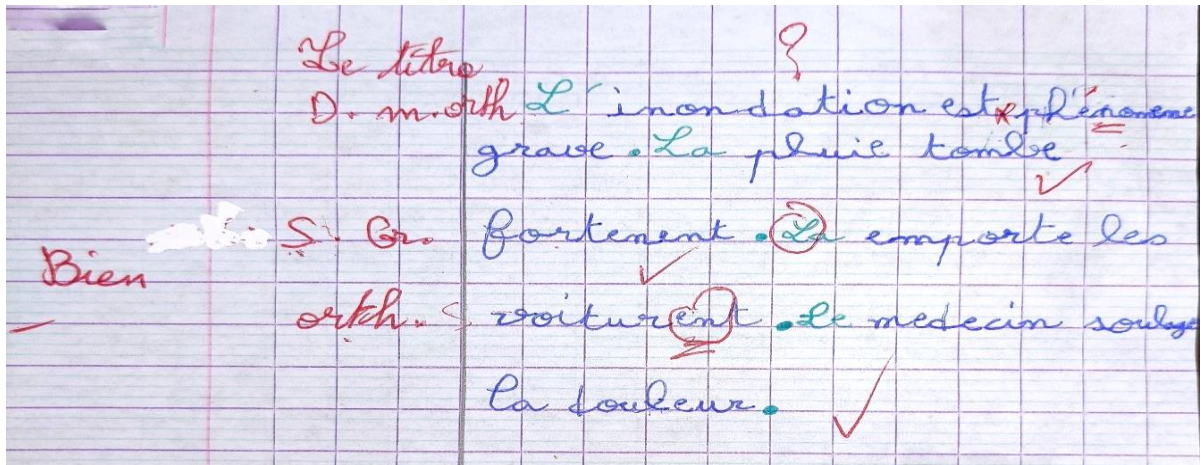 Le titre ?
D. m. orth L'inondation est phénomene
grave. La pluie tombe
S. Gr. fortenent. La emporte les
Bien
orth. voiturent. Le medecin soulage
la douleur.